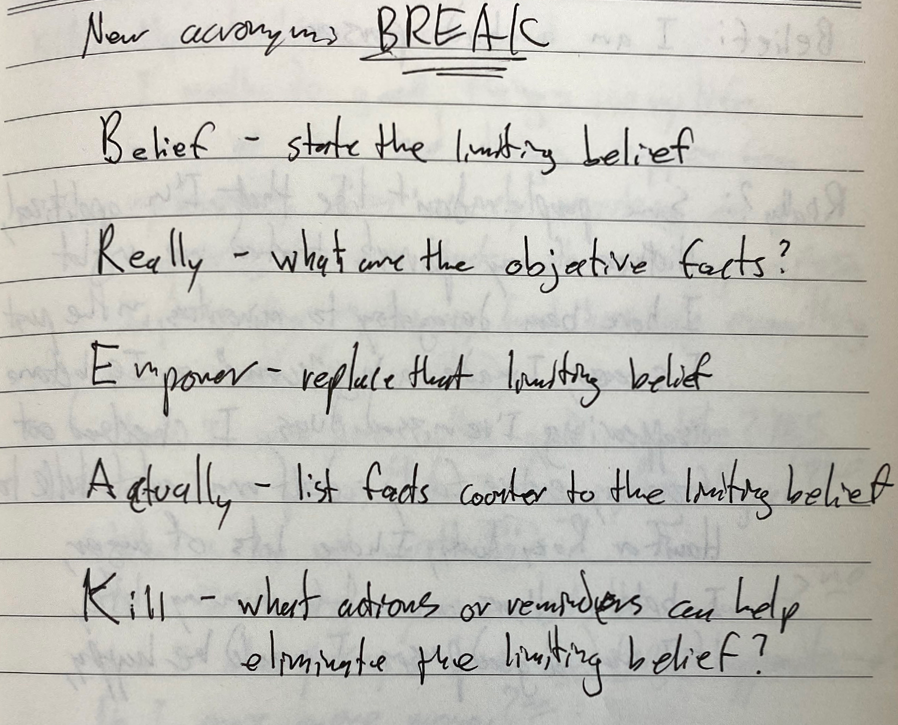 New acronym: BREAK
Belief - state the limiting belief
Really - what are the objective facts?
Empower - replace that limiting belief
Actually - list facts counter to the limiting belief
Kill - what actions or reminders can help
eliminate the limiting belief?